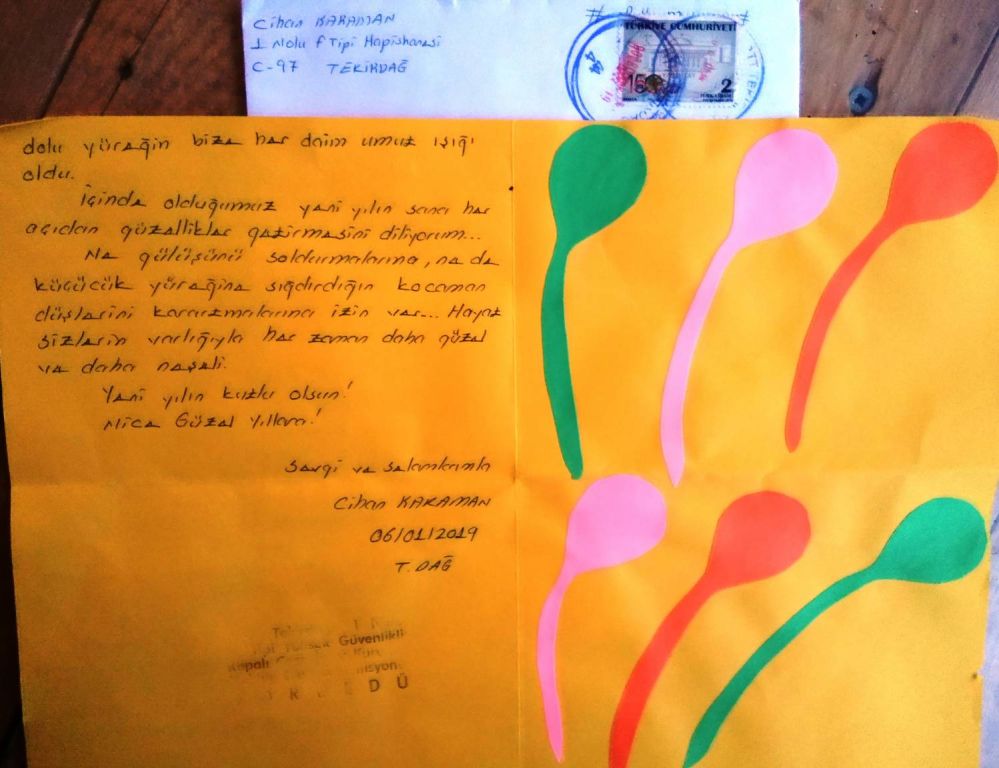 Cihan KARAMAN
1 Nolu F Tipi Hapishanesi
C-97 TEKİRDAĞ
TÜRKİYE CUMHURİYETİ
2
dolu yüreğin bize her daim umut ışığı
oldu.
İçinde olduğumuz yeni yılın sana her
açıdan güzellikler getirmesini diliyorum...
Ne gülüşünü soldurmalarına, ne de
küçücük yüreğine sığdırdığın kocaman
düşlerini karartmalarına izin ver... Hayat
sizlerin varlığıyla her zaman daha güzel
ve daha neşeli.
Yeni yılın kutlu olsun!
Nice Güzel Yıllara!
Sevgi ve selamlarımla
Cihan KARAMAN
06/01/2019
T. DAĞ
Güvenlikli